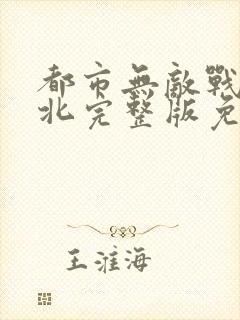 都市無敵戰
北完整版免
王淮海